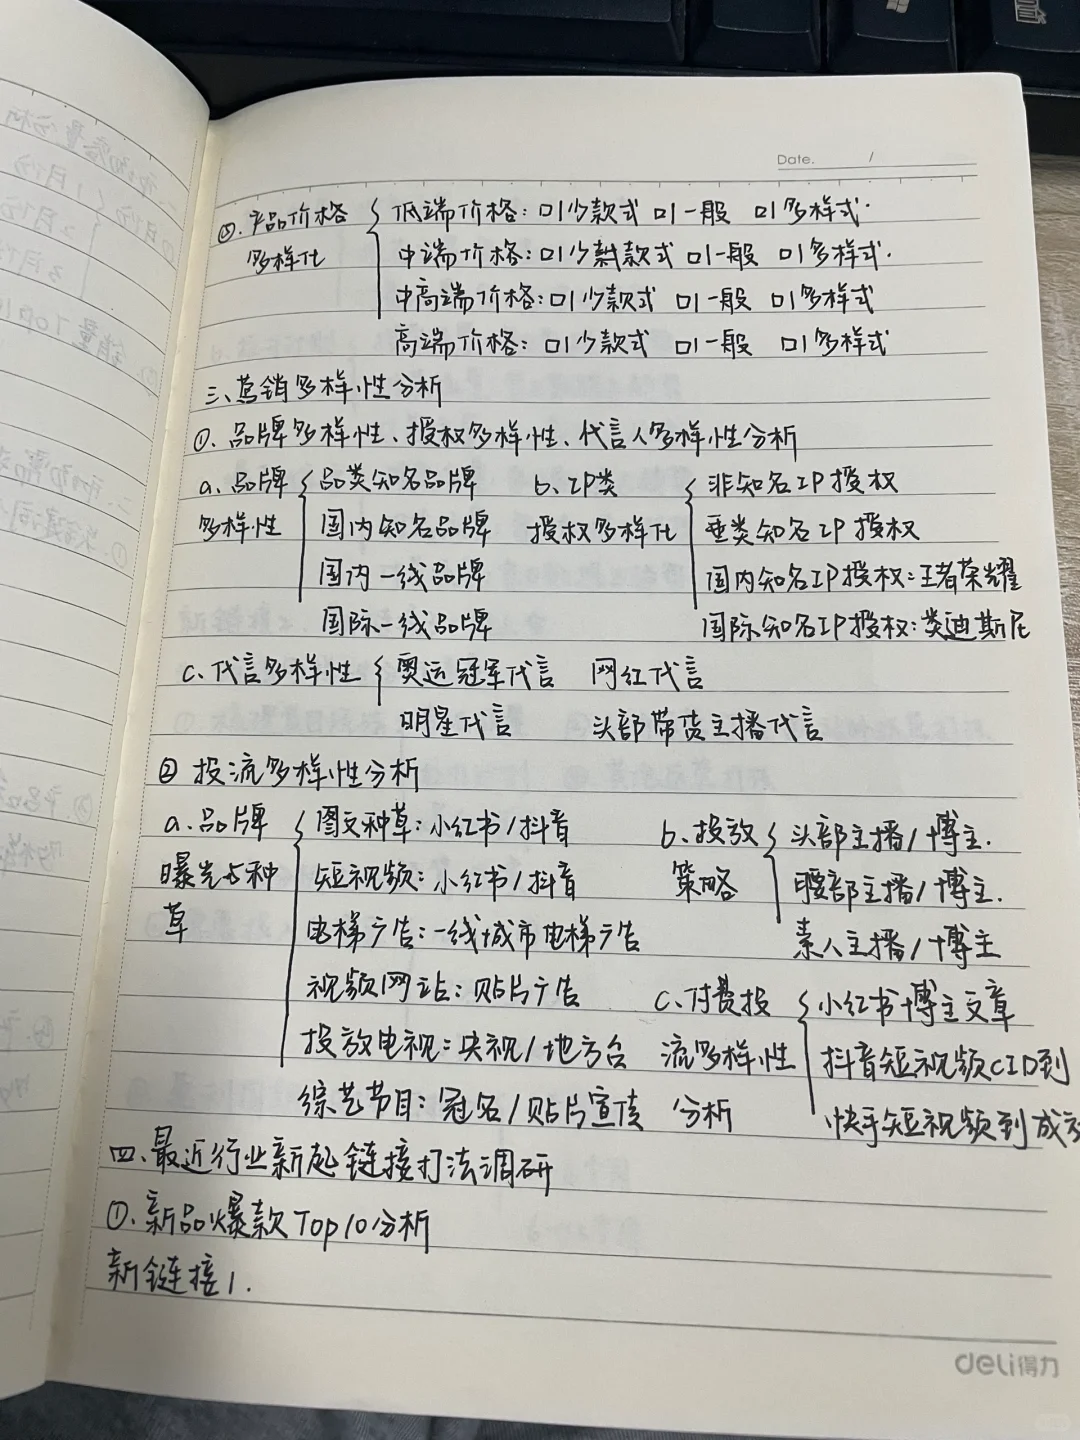 Date. /
⑤. 产品价格 低端价格:口少款式 口一般 口多样式.
多样化 中端价格:口少款式 口一般 口多样式.
中高端价格:口少款式 口一般 口多样式
高端价格: 口少款式 口一般 口多样式
三、营销多样性分析
①. 品牌多样性、授权多样性、代言人多样性分析
a. 品牌 品类知名品牌 b. IP类 非知名IP授权
多样性 国内知名品牌 授权多样化 垂类知名IP授权
国内一线品牌 国内知名IP授权:王者荣耀
国际一线品牌 国际知名IP授权:类迪斯尼
c. 代言多样性 奥运冠军代言 网红代言
明星代言 头部带货主播代言
② 投流多样性分析
a. 品牌 图文种草:小红书/抖音 b. 投放 头部主播/博主.
曝光与种 短视频:小红书/抖音 策略 腰部主播/博主.
草 电梯广告:一线城市电梯广告 素人主播/博主
视频网站:贴片广告 c. 付费投 小红书博主文章
投放电视:央视/地方台 流多样性 抖音短视频CID到
综艺节目:冠名/贴片宣传 分析 快手短视频到成
四、最近行业新起链接打法调研
①. 新品爆款Top10分析
新链接1.
deli得力